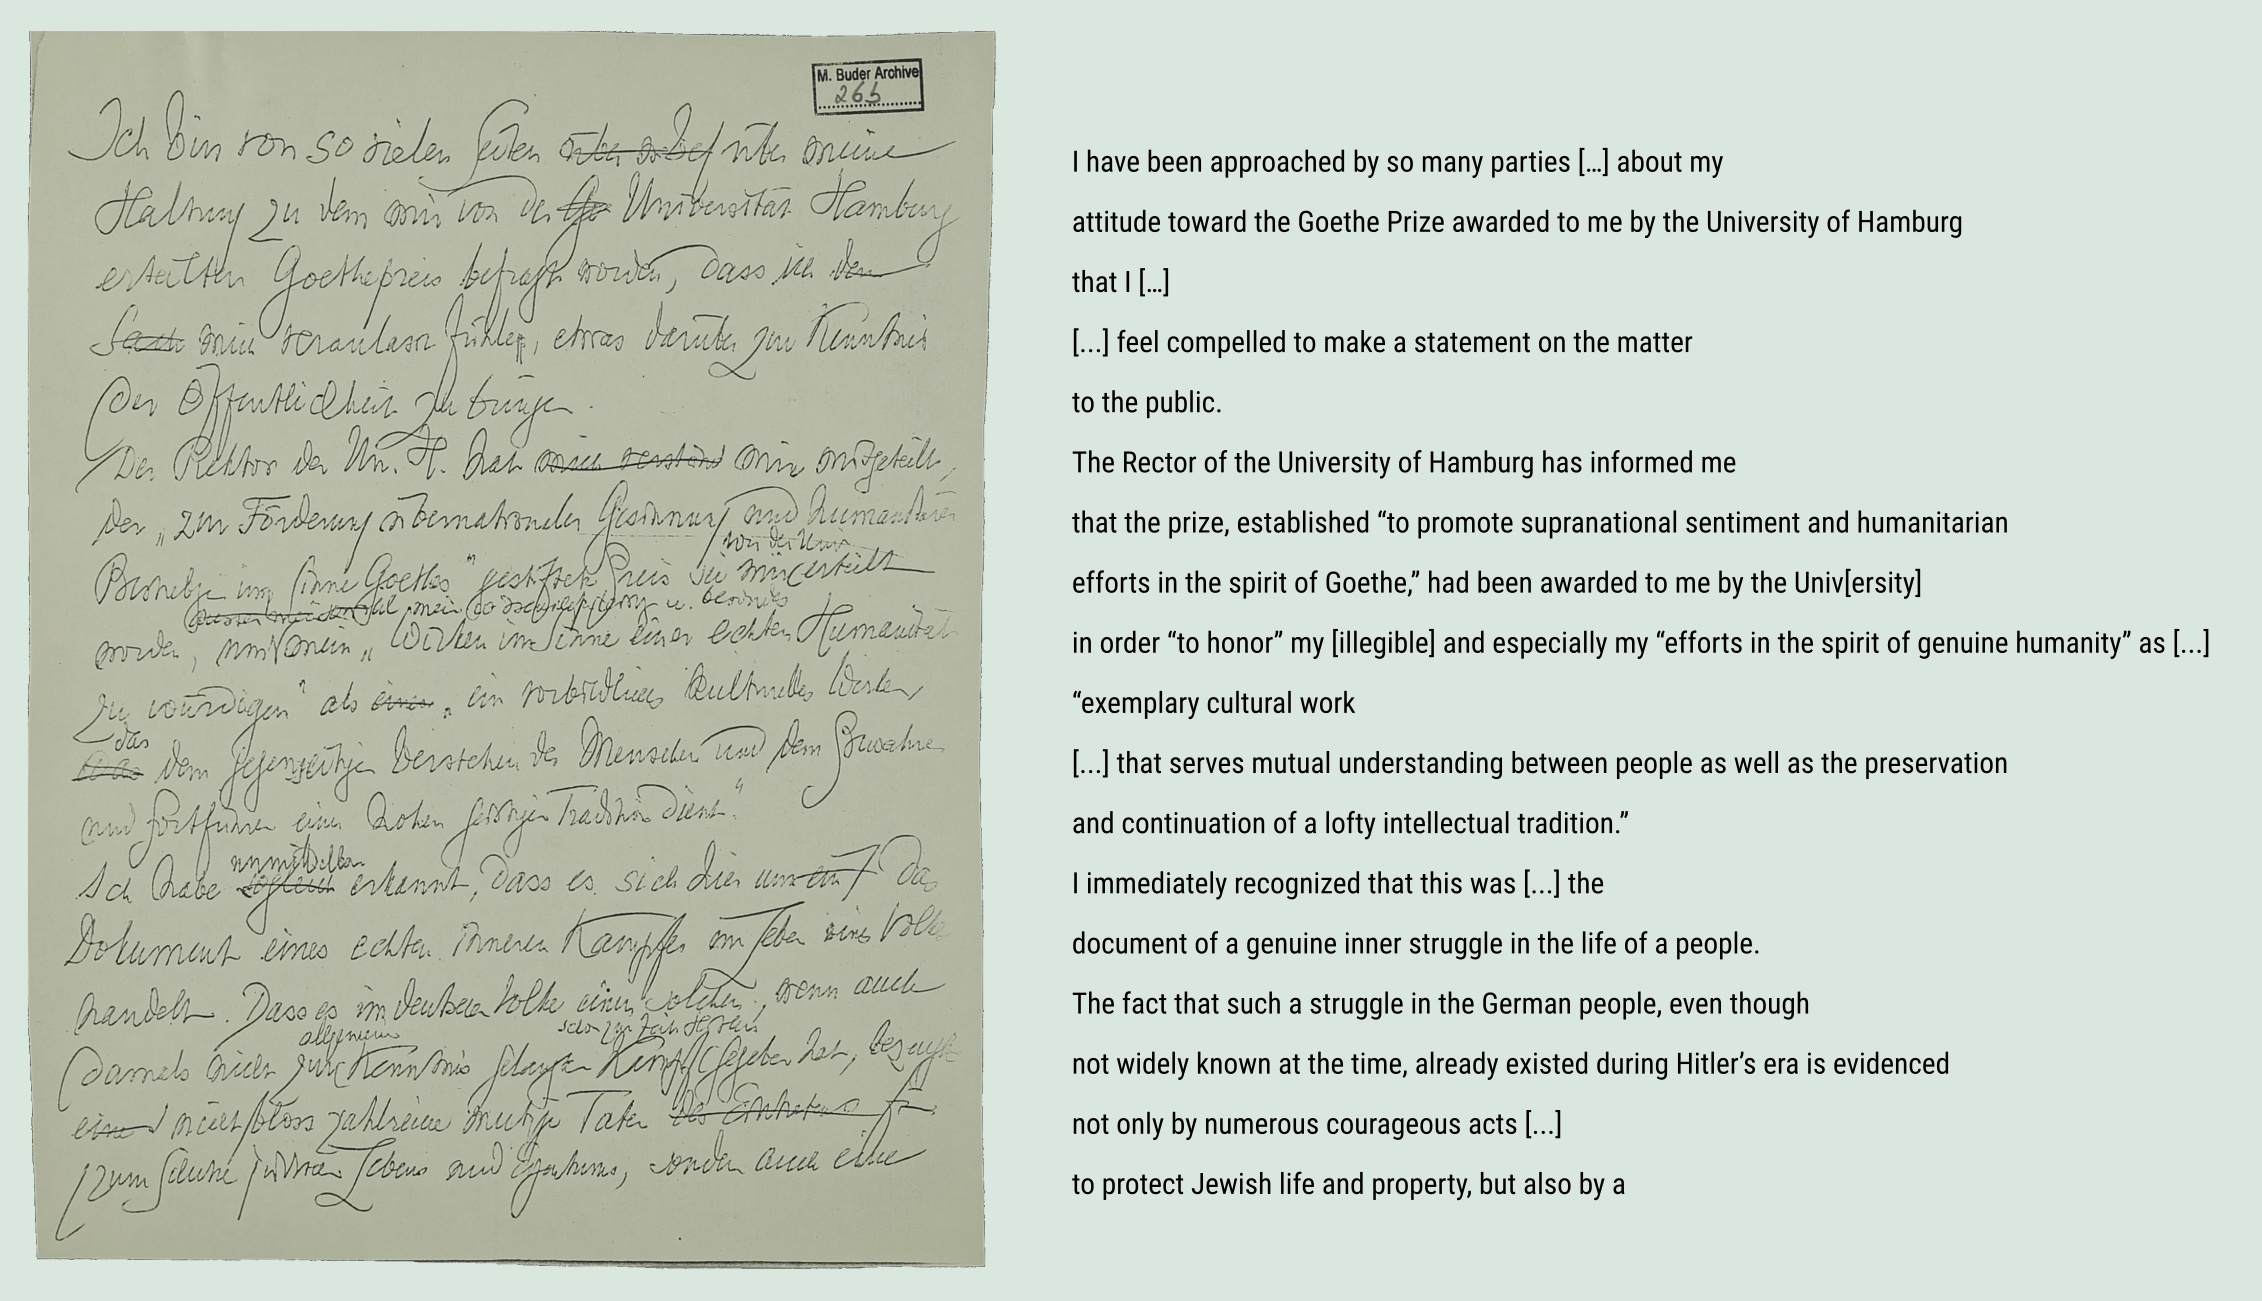 M. Buder Archive
265
Ich bin von so vielen Seiten über meine
Haltung zu dem mir von der Universität Hamburg
erteilten Goethepreis befragt worden, dass ich den
mich veranlasst fühle, etwas darüber zur Kenntnis
der Öffentlichkeit zu bringen.
Der Rektor der Un. H. hat mich verständ mir mitgeteilt,
der „zur Förderung übernationaler Gesinnung und humanitärer
von der Univ
im Sinne Goethes" gestiftete Preis sei mir erteilt
mein u. besonders
worden, um mein „Wirken im Sinne einer echten Humanität
zu würdigen" als „ein vorbildliches kulturelles Wirken,
das
dem gegenseitigen Verstehen der Menschen und dem Bewahren
und Fortführen einer hohen geistigen Tradition dient."
unmittelbar
Ich habe sogleich erkannt, dass es sich hier um ein das
Dokument eines echten inneren Kampfes im Leben eines Volkes
handelt. Dass es im deutschen Volke einen solchen, wenn auch
allgemeinen schon zur Zeit Hitlers
damals nicht zur Kenntnis gelangten Kampf gegeben hat, bezeugt
nicht bloss zahlreiche mutige Taten des Eintretens für
zum Schutze jüdischen Lebens und Eigentums, sondern auch eine
I have been approached by so many parties […] about my
attitude toward the Goethe Prize awarded to me by the University of Hamburg
that I […]
[...] feel compelled to make a statement on the matter
to the public.
The Rector of the University of Hamburg has informed me
that the prize, established “to promote supranational sentiment and humanitarian
efforts in the spirit of Goethe,” had been awarded to me by the Univ[ersity]
in order “to honor” my [illegible] and especially my “efforts in the spirit of genuine humanity” as [...]
“exemplary cultural work
[...] that serves mutual understanding between people as well as the preservation
and continuation of a lofty intellectual tradition.”
I immediately recognized that this was [...] the
document of a genuine inner struggle in the life of a people.
The fact that such a struggle in the German people, even though
not widely known at the time, already existed during Hitler’s era is evidenced
not only by numerous courageous acts [...]
to protect Jewish life and property, but also by a